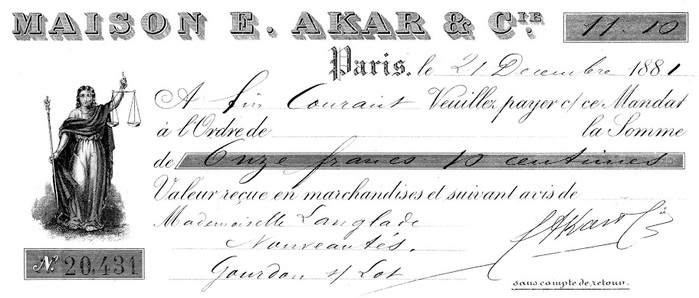 MAISON E. AKAR & CIE. 11.10
Paris, le 21 Decembre 1881
A fin Courant Veuillez payer c/ ce Mandat
à l'Ordre de la Somme
de Onze francs 10 centimes
Valeur reçue en marchandises et suivant avis de
Mademoiselle Langlade
Nouveautés.
Gourdon s/ Lot
E Akar & Cie
No. 20,431
sans compte de retour.